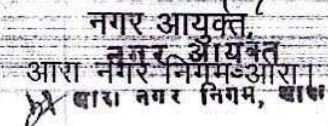 नगर आयुक्त,
नगर आयुक्त
आरा नगर निगम-आरा।
आरा नगर निगम, आरा